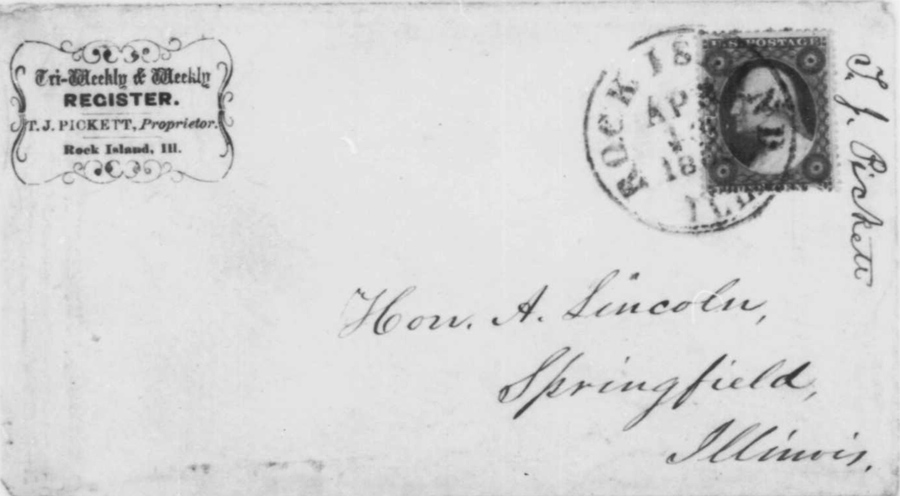 Tri-Weekly & Weekly
REGISTER.
T. J. PICKETT, Proprietor.
Rock Island, Ill.
ROCK IS
AP
18
ILL
U.S. POSTAGE
T. J. Pickett
Hon. A. Lincoln,
Springfield,
Illinois.